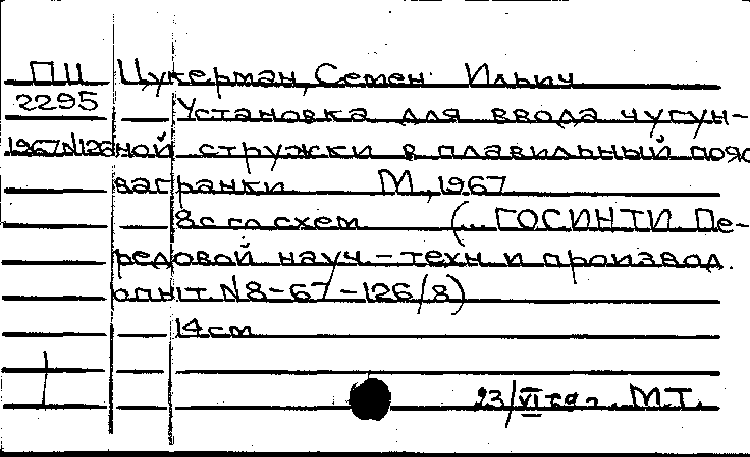 ПЦ Цукерман, Семен Ильич
2295 Установка для ввода чугун-
1967 N126 ной стружки в плавильный пояс
вагранки М., 1967
8с со схем. (... ГОСИНТИ Пе-
редовой науч.-техн и производ.
опыт. N8-67-126/8)
14см
23/VI М.Т.